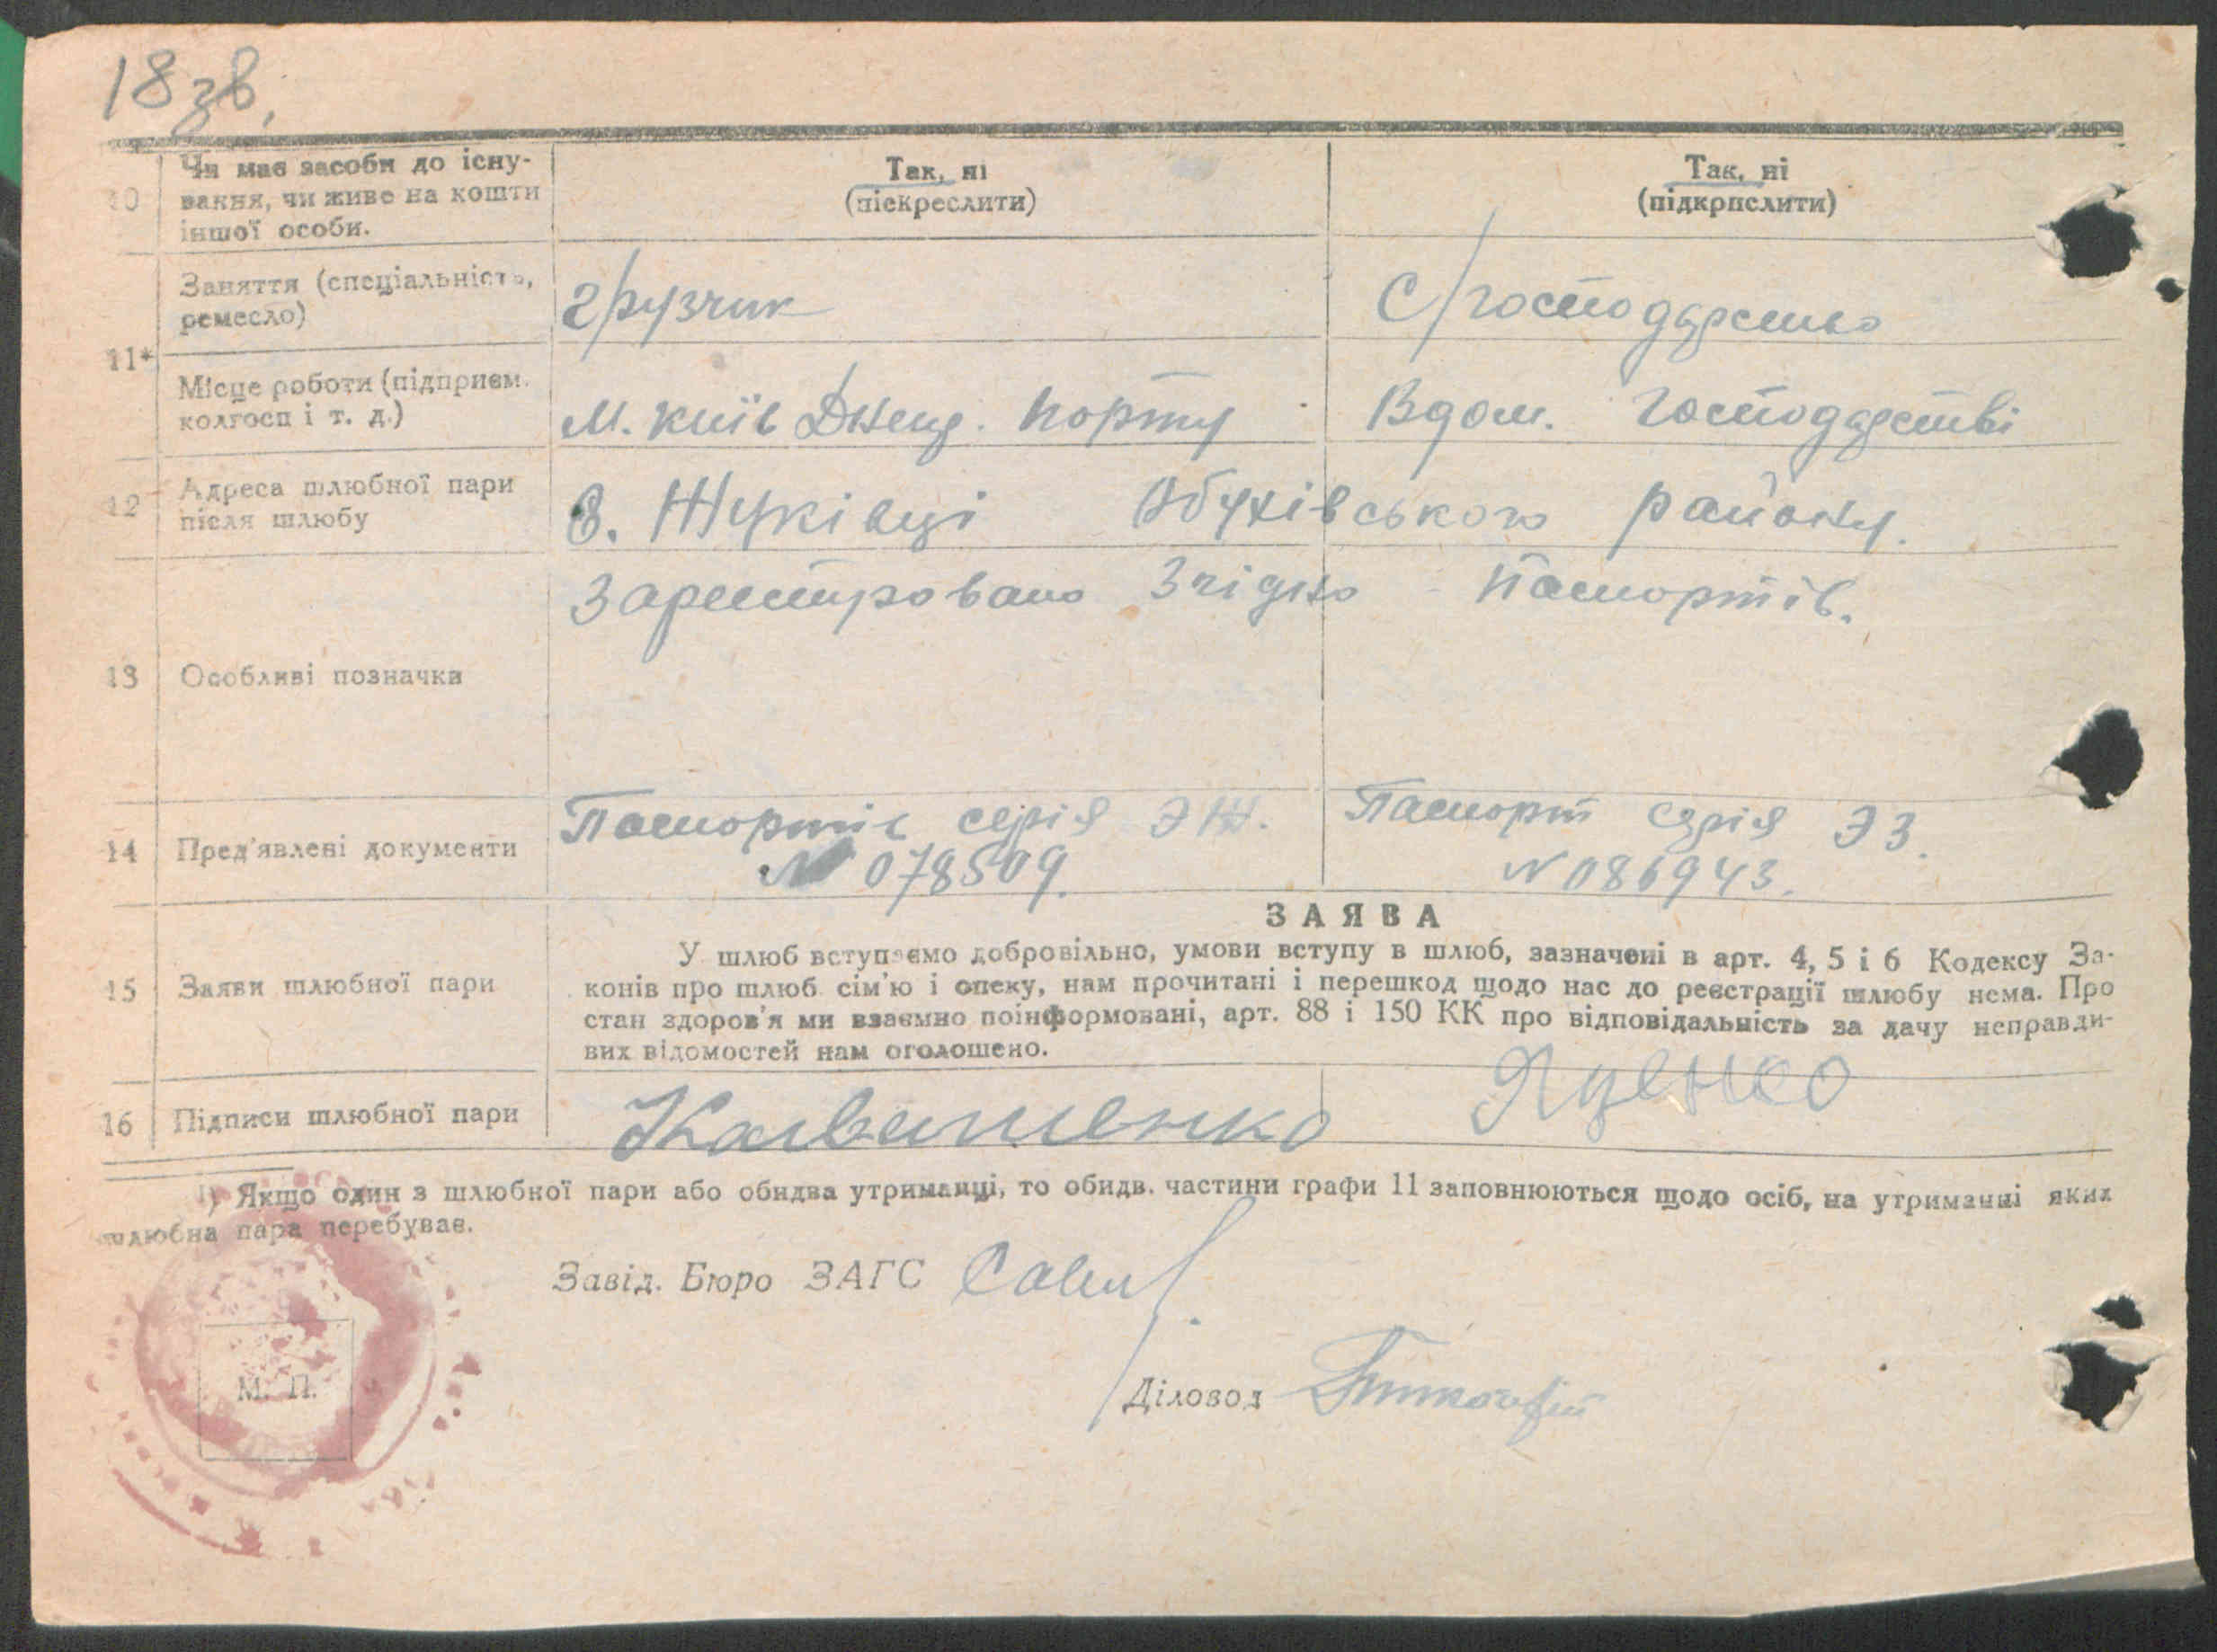 18 зв.
10 Чи має засоби до існу-
вання, чи живе на кошти
іншої особи.
Так, ні
(піскреслити)
Так, ні
(підкрислити)
11*
Заняття (спеціальність,
ремесло)
грузчик
С/господарство
Місце роботи (підприєм.
колгосп і т. д.)
М. Київ Днепр. Порту
В дом. господарстві
12 Адреса шлюбної пари
після шлюбу
С. Жуківці Обухівського району.
13 Особливі позначка
Зареєстровано Згідно Паспортів.
14 Пред'явлені документи
Паспортів серія ЭЖ.
N 078509.
Паспорт серія ЭЗ.
N 086943.
15 Заяви шлюбної пари
ЗАЯВА
У шлюб вступаємо добровільно, умови вступу в шлюб, зазначені в арт. 4, 5 і 6 Кодексу За-
конів про шлюб сім'ю і опеку, нам прочитані і перешкод щодо нас до реєстрації шлюбу нема. Про
стан здоров'я ми взаємно поінформовані, арт. 88 і 150 КК про відповідальність за дачу неправди-
вих відомостей нам оголошено.
16 Підписи шлюбної пари
Яценко
1) Якщо один з шлюбної пари або обидва утриманці, то обидв. частини графи 11 заповнюються щодо осіб, на утриманні яких
шлюбна пара перебуває.
Завід. Бюро ЗАГС
Діловод
М. П.